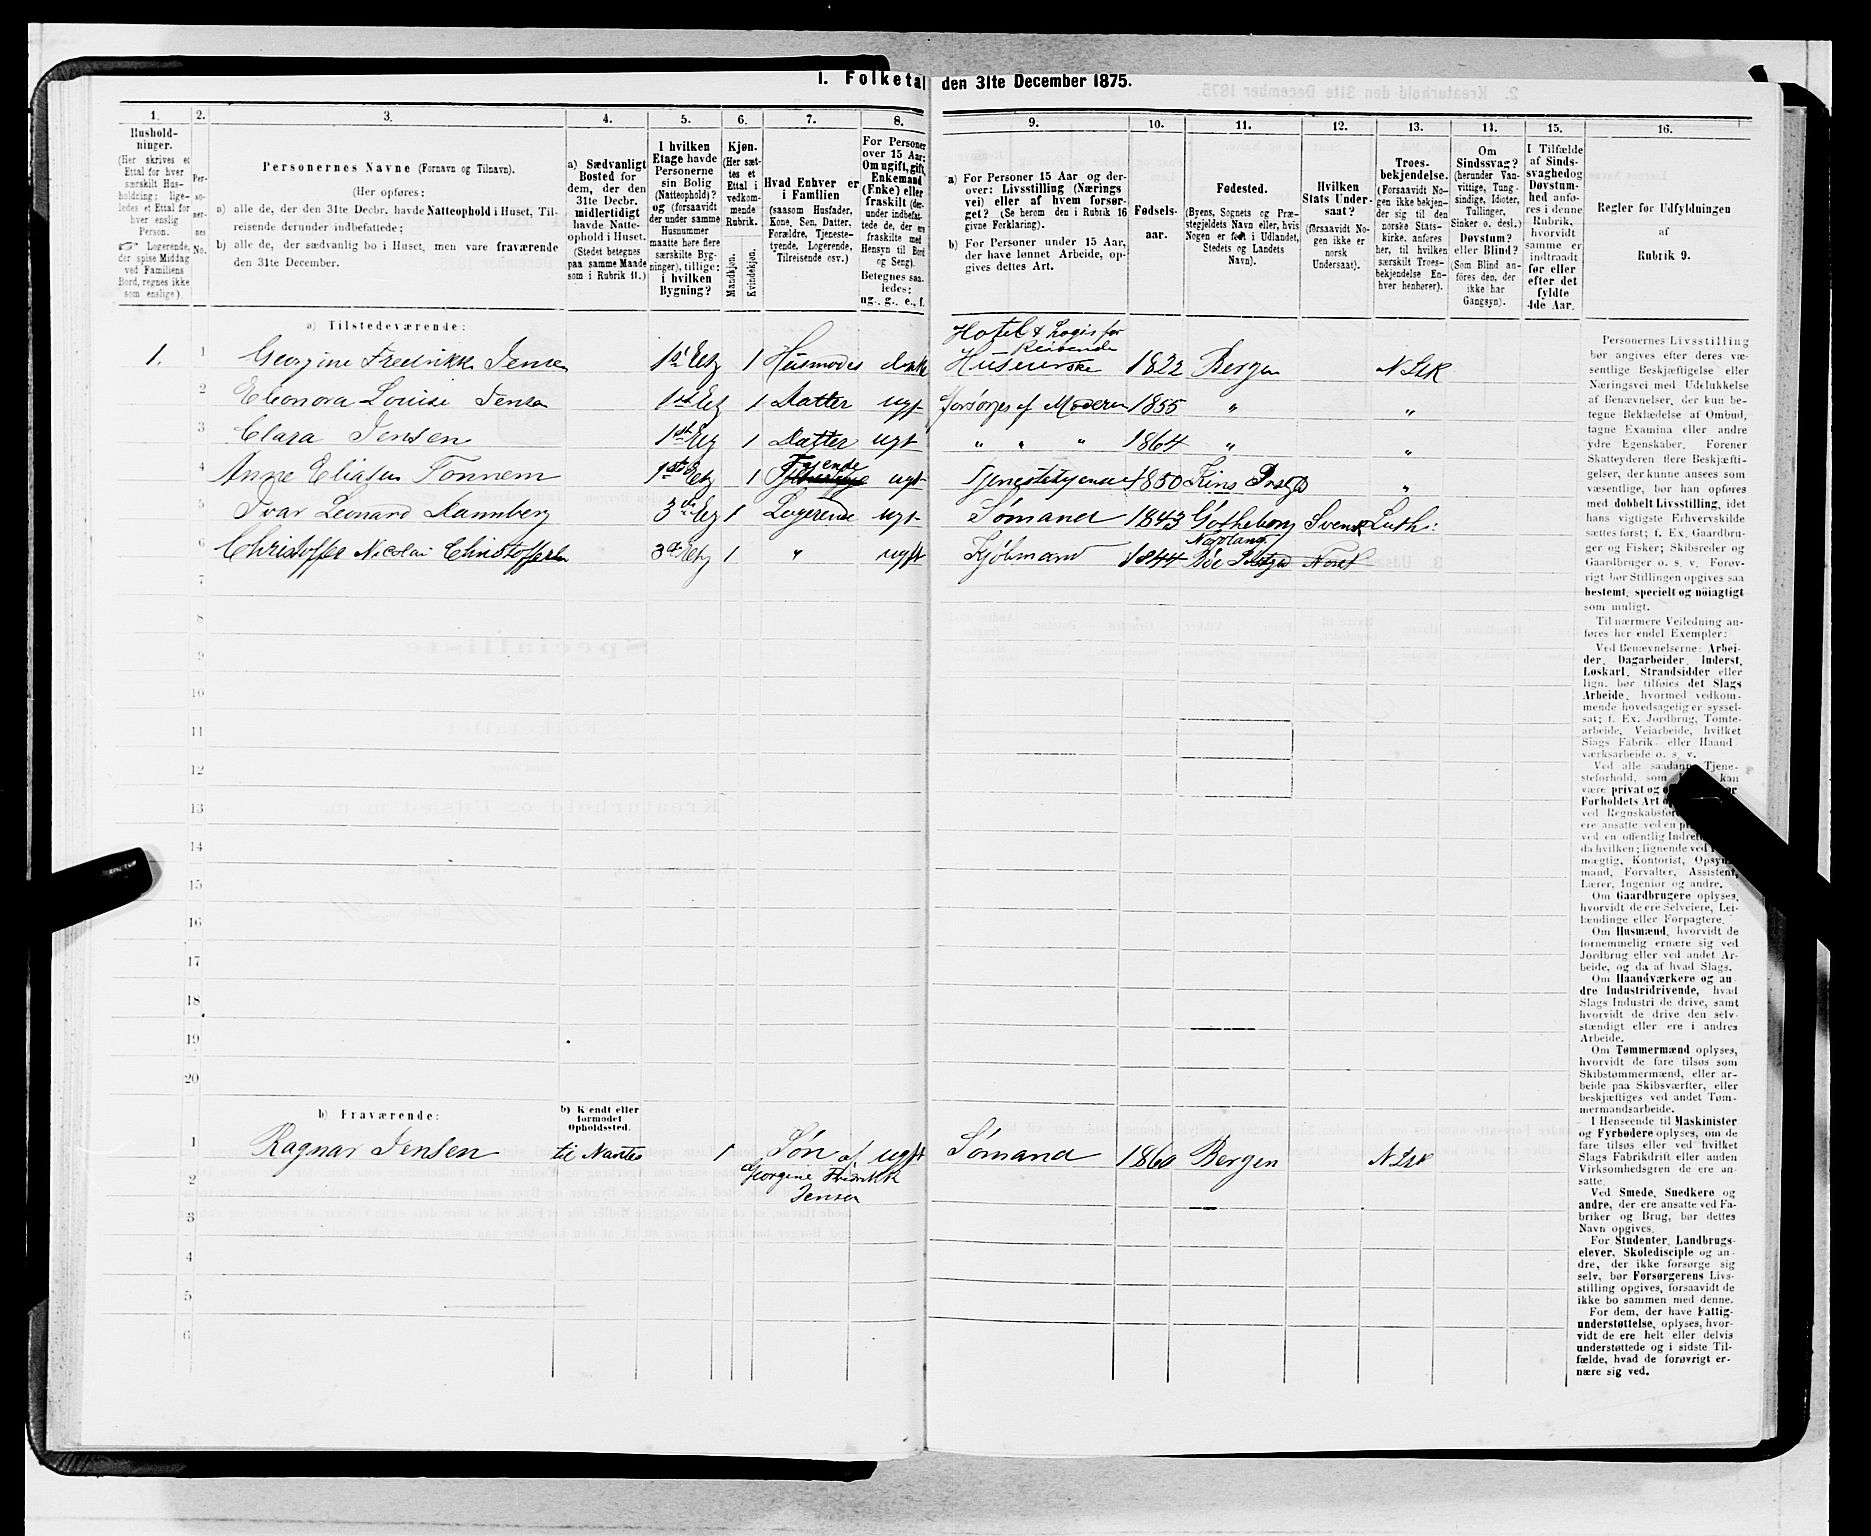 1. Folketal den 31te December 1875.
1.
Hushold-
ninger.
(Her skrives et
Ettal for hver
særskilt Hus-
holdning; lige-
ledes et Ettal for
hver enslig
Person.
☞ Logerende,
der spise Middag
ved Familiens
Bord, regnes ikke
som enslige).
2.
Per-
so-
ner-
nes
No.
3.
Personernes Navne (Fornavn og Tilnavn).
(Her opføres:
a) alle de, der den 31te Decbr. havde Natteophold i Huset, Til-
reisende derunder indbefattede;
b) alle de, der sædvanlig bo i Huset, men vare fraværende
den 31te December.
4.
a) Sædvanligt
Bosted for
dem, der den
31te Decbr.
midlertidigt
havde Natte-
ophold i Huset.
(Stedet betegnes
paa samme Maade
som i Rubrik 11.)
5.
I hvilken
Etage havde
Personerne
sin Bolig
(Natteophold)?
og (forsaavidt
der under samme
Husnummer
maatte høre flere
særskilte Byg-
ninger), tillige:
i hvilken
Bygning?
6.
Kjøn.
(Her sæt-
tes et
Ettal i
vedkom-
mende
Rubrik.
Mandkjøn.
Kvindekjøn.
7.
Hvad Enhver er
i Familien
(saasom Husfader,
Kone, Søn, Datter,
Forældre, Tjeneste-
tyende, Logerende,
Tilreisende osv.)
8.
For Personer
over 15 Aar:
Om ugift, gift,
Enkemand
(Enke) eller
fraskilt (der-
under indbefat-
tede de, der ere
fraskilte med
Hensyn til Bord
og Seng).
Betegnes saa-
ledes:
ug., g., e., f.
9.
a) For Personer 15 Aar og der-
over: Livsstilling (Nærings
vei) eller af hvem forsør-
get? (Se herom den i Rubrik 16
givne Forklaring).
b) For Personer under 15 Aar,
der have lønnet Arbeide, op-
gives dettes Art.
10.
Fødsels-
aar.
11.
Fødested.
(Byens, Sognets og Præ-
stegjeldets Navn eller, hvis
Nogen er født i Udlandet,
Stedets og Landets
Navn).
12.
Hvilken
Stats Under-
saat?
(forsaavidt No-
gen ikke er
norsk
Undersaat).
13.
Troes-
bekjendelse.
(Forsaavidt No-
gen ikke bekjen-
der sig til den
norske Stats-
kirke, anføres
her, til hvilken
særskilt Troes-
bekjendelse En-
hver henhører).
14.
Om
Sindssvag?
(herunder Van-
vittige, Tung-
sindige, Idioter,
Tullinger,
Sinker o. desl.)
Døvstum?
eller Blind?
(Som Blind an-
føres den, der
ikke har
Gangsyn).
15.
I Tilfælde
af Sinds-
svaghed og
Døvstum-
hed anfø-
res i denne
Rubrik,
hvorvidt
samme er
indtraadt
før eller
efter det
fyldte
4de Aar.
16.
Regler for Udfyldningen
af
Rubrik 9.
a) Tilstedeværende:
Hotel & Logis for
Reisende
1. 1 Georgine Fredrikke Jensen 1ste Etg 1 Husmoder enke Huseierske 1822 Bergen N Stk
2 Eleonora Louise Jensen 1ste Etg 1 Datter ugft forsørjes af Moderen 1855 " "
3 Clara Jensen 1ste Etg 1 Datter ugft " " " 1864 " "
4 Anne Eliasen Tonnem 1ste Etg 1 Tyende ugft Tjenestetyende 1850 Kins Prstgd "
5 Ivar Leonard Dannberg 3die Etg 1 Logerende ugft Sømand 1843 Gotheborg Svensk Luth:
6 Christoffer Nicolai Christoffersen 3die Etg 1 " ugft Kjøbmand 1844 Bøe Nordland Norsk
7
8
9
10
11
12
13
14
15
16
17
18
19
20
b) Fraværende:
b) Kjendt eller
formodet
Opholdssted.
1 Ragnar Jensen til Nantes 1 Søn af ugft Sømand 1860 Bergen N Stk
2 Georgine Fredrikke
Jensen
3
4
5
6
Personernes Livsstilling
bør angives efter deres væ-
sentlige Beskjæftigelse eller
Næringsvei med Udelukkelse
af Benævnelser, der kun be-
tegne Beklædelse af Ombud,
tagne Examina eller andre
ydre Egenskaber. Forener
Skatteyderen flere Beskjæfti-
gelser, der kunne ansees som
væsentlige, bør han opføres
med dobbelt Livsstilling, idet
hans vigtigste Erhvervskilde
sættes først; f. Ex. Gaardbru-
ger og Fisker; Skibsreder og
Gaardbruger o. s. v. Forøv-
rigt bør Stillingen opgives saa
bestemt, specielt og nøiagtigt
som muligt.
Til nærmere Veiledning an-
føres her endel Exempler:
Ved Benævnelserne: Arbei-
der, Dagarbeider, Inderst,
Løskarl, Strandsidder eller
lign. bør tilføies det Slags
Arbeide, hvormed vedkom-
mende hovedsagelig er syssel-
sat; f. Ex. Jordbrug, Tomte-
arbeide, Veiarbeide, hvilket
Slags Fabrik- eller Haand
værksarbeide o. s. v.
Ved alle saadanne Tjene-
steforhold, som kan
være privat og
Forholdets Art
ved Regnskabsfør
ere ansatte ved en
ved en offentlig Indret
da hvilken; lignende ved
mægtig, Kontorist, Opsyns-
mand, Forvalter, Assistent,
Lærer, Ingeniør og andre.
Om Gaardbrugere oplyses,
hvorvidt de ere Selveiere, Lei-
lændinge eller Forpagtere.
Om Husmænd, hvorvidt de
fornemmelig ernære sig ved
Jordbrug eller ved andet Ar-
beide, og da af hvad Slags.
Om Haandværkere og an
dre Industridrivende, hvad
Slags Industri de drive, samt
hvorvidt de drive den selv-
stændigt eller ere i andres
Arbeide.
Om Tømmermænd oplyses,
hvorvidt de fare tilsøs som
Skibstømmermænd, eller ar-
beide paa Skibsværfter, eller
beskjæftiges ved andet Tøm-
mermandsarbeide.
I Henseende til Maskinister
og Fyrbødere oplyses, om de
fare tilsøs eller ved hvilket
Slags Fabrikdrift eller anden
Virksomhedsgren de ere an-
satte.
Ved Smede, Snedkere og
andre, der ere ansatte ved Fa-
briker og Brug, bør dettes
Navn opgives.
For Studenter, Landbrugs-
elever, Skoledisciple og an-
dre, der ikke forsørge sig
selv, bør Forsørgerens Livs-
stilling opgives, forsaavidt de
ikke bo sammen med denne.
For dem, der have Fattig-
understøttelse, oplyses, hvor-
vidt de ere helt eller delvis
understøttede og i sidste Til-
fælde, hvad de forøvrigt er-
nære sig ved.